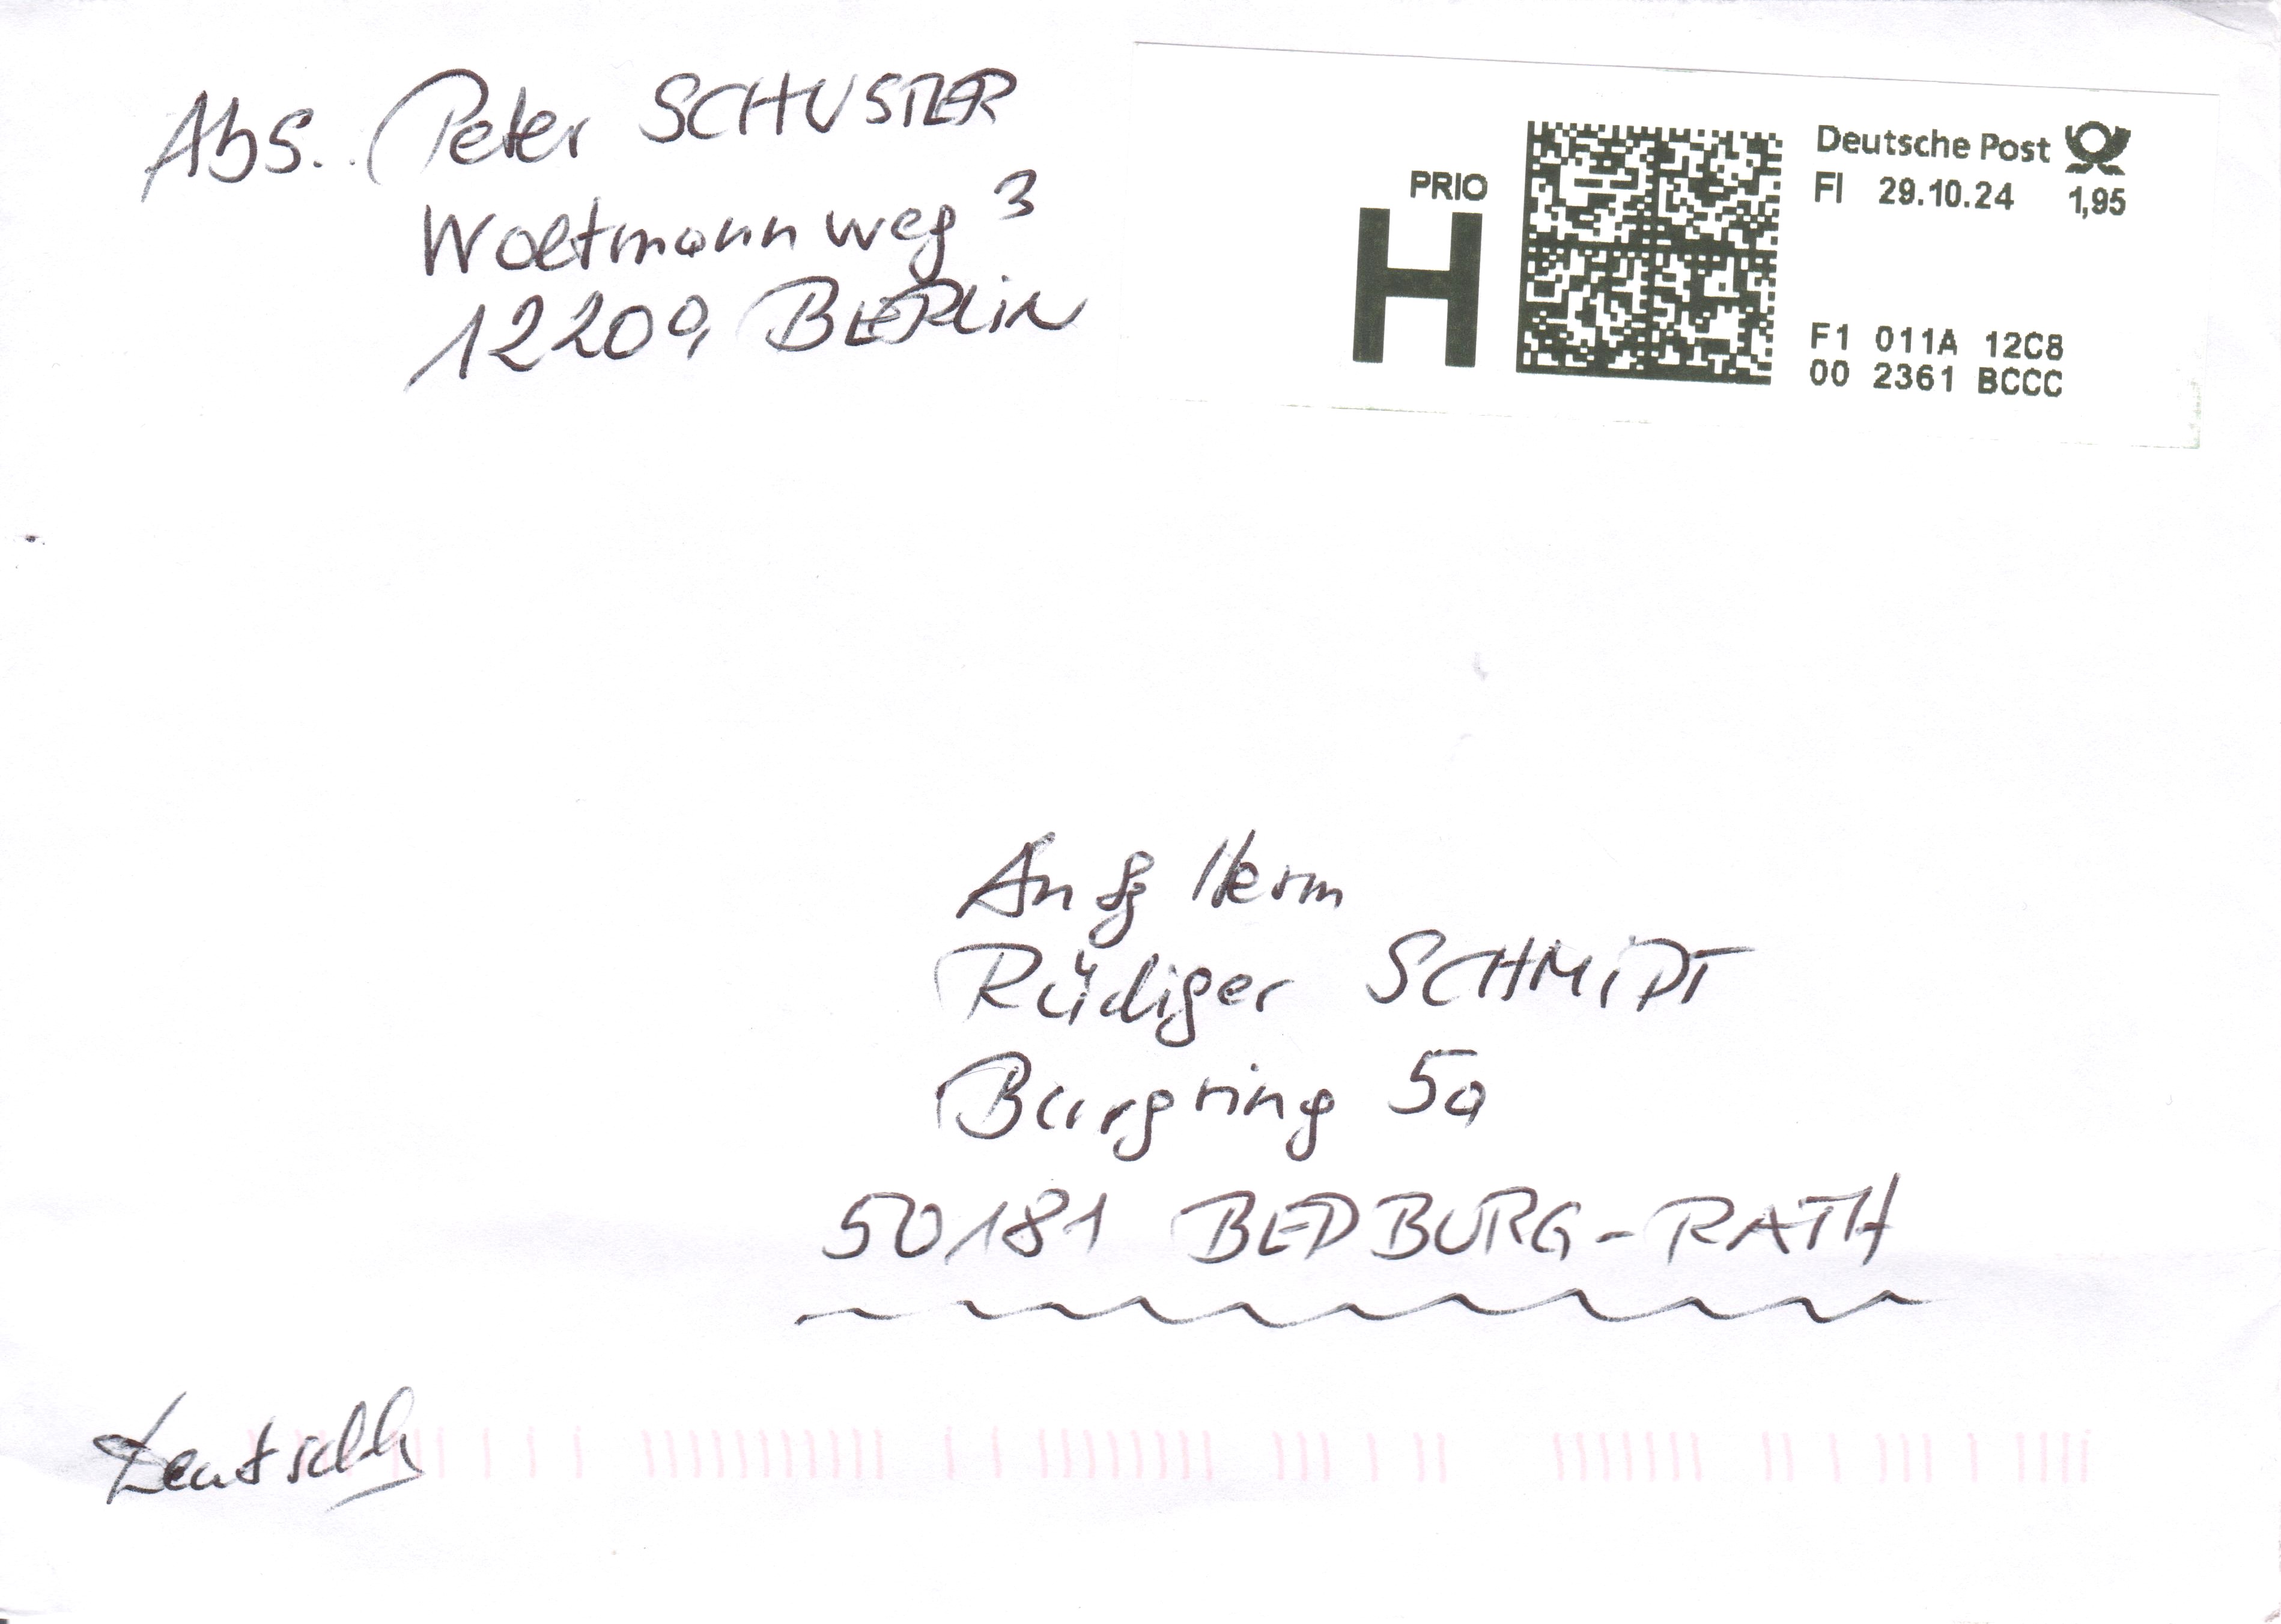 Abs. Peter SCHUSTER
Woltmannweg 3
12209 BERLiN
PRIO
H
Deutsche Post
FI 29.10.24 1,95
F1 011A 12C8
00 2361 BCCC
An Herrn
Rüdiger SCHMiDT
Burgring 5a
50181 BEDBURG-RATH